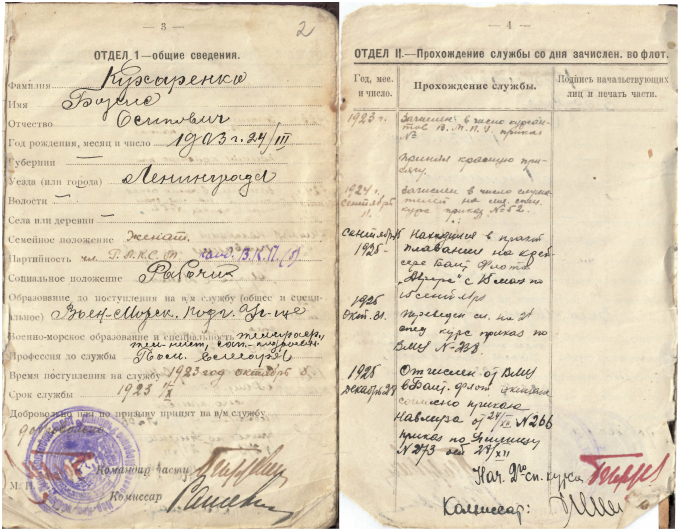 — 3 —
2
ОТДЕЛ I—общие сведения.
Фамилия Кухаренко
Имя Борис
Отчество Осипович
Год рождения, месяц и число 1903 г. 24/III
Губернии —
Уезда (или города) Ленинграда
Волости —
Села или деревни —
Семейное положение женат.
Партийность чл. канд. В.К.П. (б)
Социальное положение Рабочий
Образование до поступления на в/м службу (общее и специ-
альное) Воен-Морск. Подг. Уч-ще
Военно-морское образование и специальность
Профессия до службы слесаря
Время поступления на службу 1923 год октябрь
Срок службы 1923 /X
Добровольно или по призыву принят на в/м службу
добровольно
Командир части
М. П.
Комиссар
— 4 —
ОТДЕЛ II.—Прохождение службы со дня зачислен. во флот.
Год, мес. и число.
Прохождение службы.
Подпись начальствующих лиц и печать части.
1923 г. Зачислен в число курсан-
тов В.М.П.У. приказ
№
Принял красную при-
сягу.
1924 г. Зачислен в число слуша-
сентября телей на
курс приказ № 52.
сентябрь Находился в практ
1925 плавании на крей-
сере Балт Флота
"Аврора" с 2 мая по
сентябрь
1925 Переведен на
окт. 31. курс приказ по
ВМУ № 238.
1925 Отчислен от ВМУ
декабрь 29 в Балт. флот
согласно приказа
Навмира от 24/XII № 266
приказ по
№ 273 от 29/XII
Нач. 2го сп. курса
Комиссар: